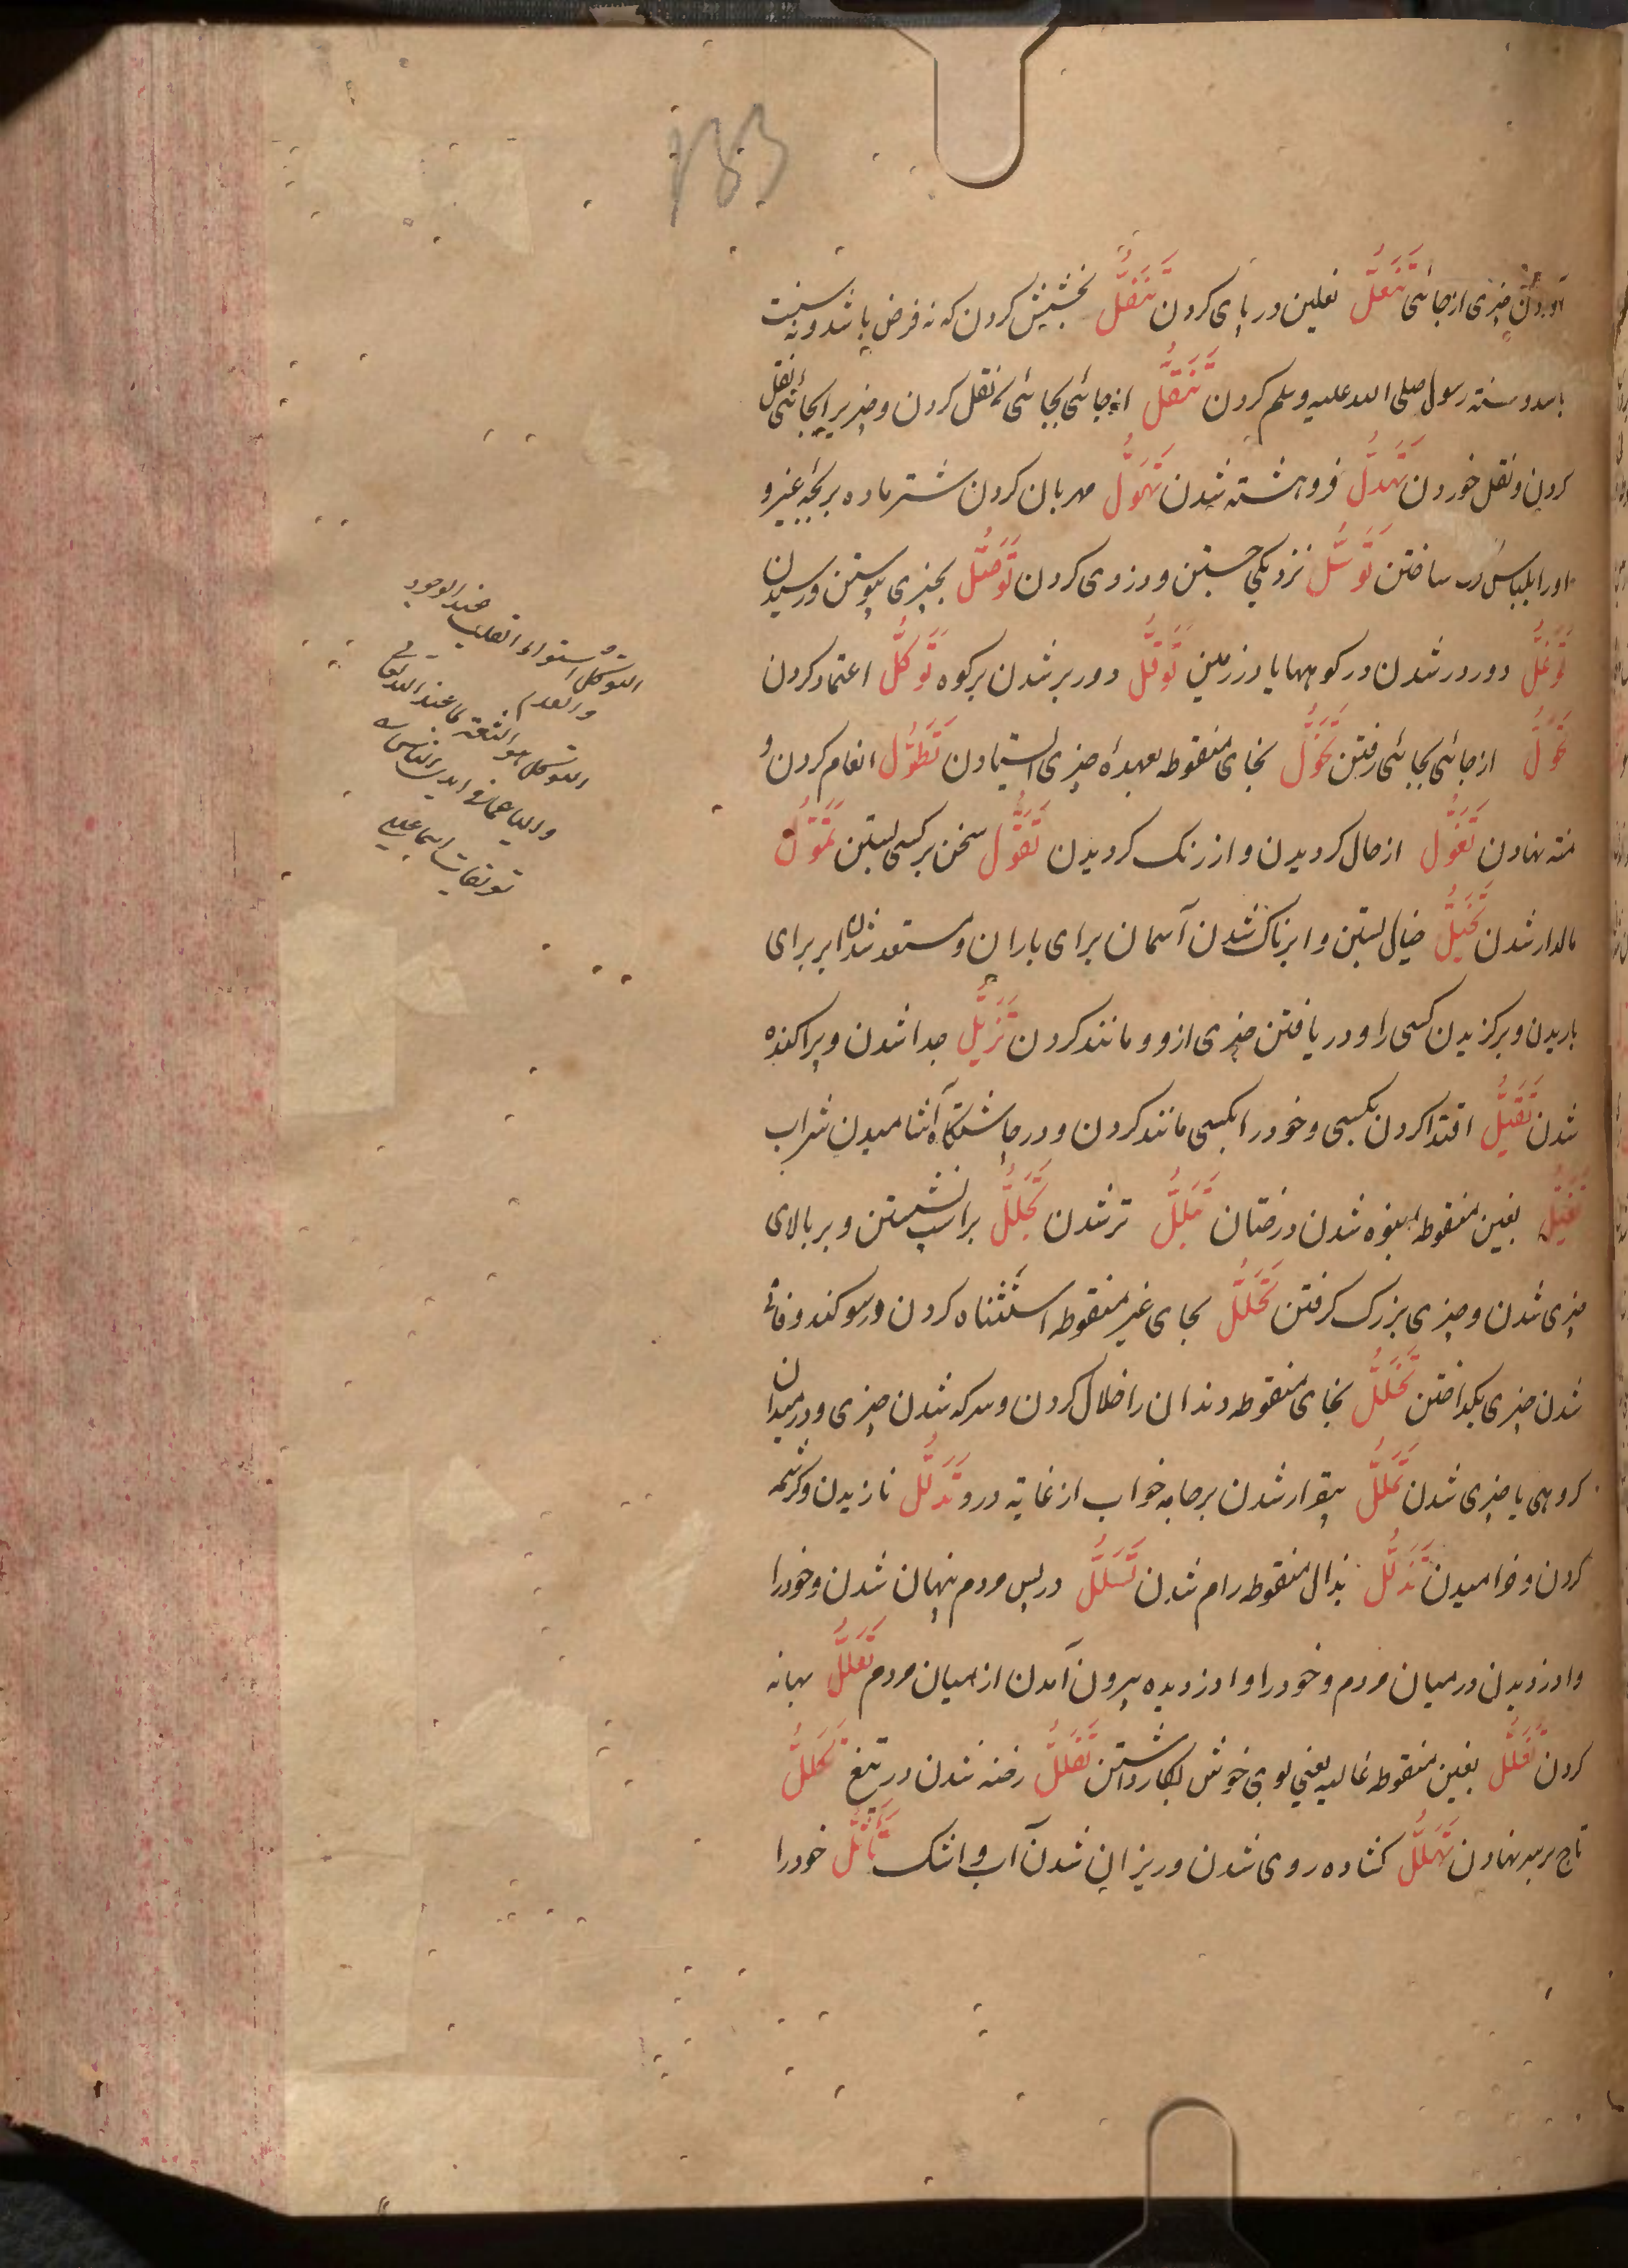 آوردن چیزی از جائی تَنَعُّل نعلین در پای کردن تَنَفُّل بخشش کردن که نه فرض باشد و نه سنت
باشد و سنته رسول صلی الله علیه وسلم کردن تَنَقُّل از جائی بجائی نقل کردن و چیزیرا بجائی نقل
کردن و نقل خوردن تَهَدُّل فروهشته شدن تَهَوُّل مهربان کردن شتر ماده بر بچه غیر و
اورا بلباس ساختن تَوَسُّل نزدیکی جستن و دزدی کردن تَوَصُّل بچیزی پیوستن و رسیدن
تَوَغُّل دور درشدن در کوهها یا در زمین تَوَقُّل دور برشدن بر کوه تَوَكُّل اعتماد کردن
تَحَوُّل از جائی بجائی رفتن تَخَوُّل بخای منقوطه بعهدهٔ چیزی ایستادن تَطَوُّل انعام کردن و
منته نهادن تَغَوُّل از حال کردیدن و از رنک کردیدن تَقَوُّل سخن بر کسی بستن تَمَوُّل
مالدار شدن تَخَيُّل خیال بستن و ابرناک شدن آسمان برای باران و مستعد شدن ابر برای
باریدن و برکزیدن کسی را و دریافتن چیزی ازو و مانند کردن تَزَيُّل جدا شدن و پراکنده
شدن تَقَيُّل اقتدا کردن بکسی و خود را بکسی مانند کردن و در چاشتگاه آشامیدن شراب
تَغَيُّل بغین منقوطه انبوه شدن درختان تَبَلُّل تر شدن تَجَلُّل بر اسب نشستن و بر بالای
چیزی شدن و چیزی بزرک کرفتن تَحَلُّل بحای غیر منقوطه استثناه کردن در سوکند و فانی
شدن چیزی بکداختن تَخَلُّل بخای منقوطه دندان را خلال کردن و سرکه شدن چیزی و در میان
کروهی یا چیزی شدن تَمَلُّل بیقرار شدن بر جامه خواب از غایه درد تَدَلُّل نازیدن و کرشمه
کردن و خرامیدن تَذَلُّل بذال منقوطه رام شدن تَسَلُّل در پس مردم پنهان شدن و خودرا
وا دزدیدن در میان مردم و خودرا وا دزدیده بیرون آمدن از میان مردم تَعَلُّل بهانه
کردن تَغَلُّل بغین منقوطه غالیه یعنی بوی خوش بکار داشتن تَفَلُّل رخنه شدن در تیغ تَكَلُّل
تاج بر سر نهادن تَهَلُّل کشاده روی شدن و ریزان شدن آب و اشک تَأَثُّل خودرا
التوكل استواء القلب عند الوجود
والعدم
التوكل هو الثقة بما عند الله تعالى
والیاس عما فی ایدی الناس